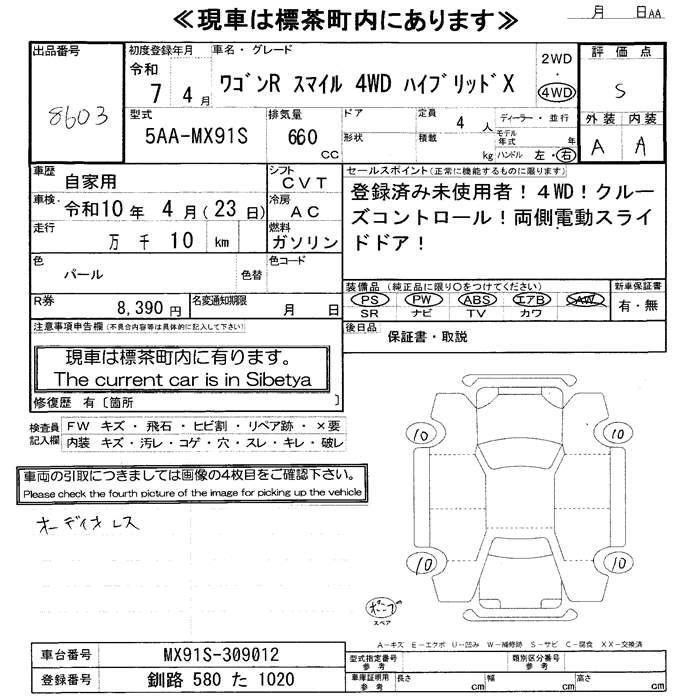 ≪現車は標茶町内にあります≫
月 日AA
出品番号 8603
初度登録年月 令和 7年 4月
車名・グレード ワゴンR スマイル 4WD ハイブリッドX
2WD・4WD
評価点 S
外装 A 内装 A
型式 5AA-MX91S
排気量 660 CC
ドア 形状
定員 4 人
積載 kg
ディーラー・並行
モデル年式 年
ハンドル 左・右
車歴 自家用
シフト CVT
車検 令和10年 4月(23日)
冷房 AC
走行 万 千 10 km
燃料 ガソリン
色 パール 色替
色コード
R券 8,390円
名変通知期限 月 日
セールスポイント(正常に機能するものに限ります)
登録済み未使用者!4WD!クルー
ズコントロール!両側電動スライ
ドドア!
装備品(純正品に限り〇をつけてください)
PS・PW・ABS・エアB・AW
SR・ナビ・TV・カワ
新車保証書 有・無
後日品 保証書・取説
注意事項申告欄(不具合内容等は具体的に記入して下さい)
現車は標茶町内に有ります。
The current car is in Sibetya
修復歴 有〔箇所 〕
検査員記入欄
FW キズ・飛石・ヒビ割・リペア跡・×要
内装 キズ・汚レ・コゲ・穴・スレ・キレ・破レ
車両の引取につきましては画像の4枚目をご確認下さい。
Please check the fourth picture of the image for picking up the vehicle
オーディオレス
10 10
10 10
スペア
A-キズ E-エクボ U-凹み W-補修跡 S-サビ C-腐食 XX-交換済
車台番号 MX91S-309012
登録番号 釧路 580 た 1020
型式指定番号 参考
類別区分番号 参考
車庫証明用 参考 長さ cm 幅 cm 高さ cm